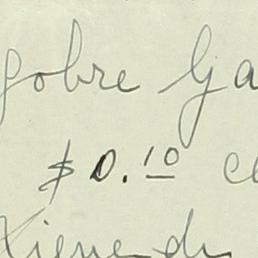 sobre Ga
$0.10 ce
Tiene di